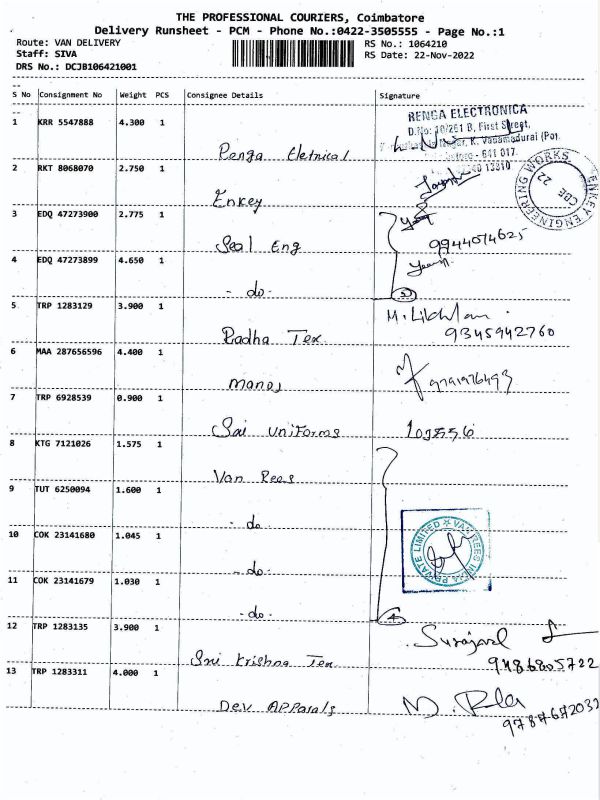 THE PROFESSIONAL COURIERS, Coimbatore
Delivery Runsheet - PCM - Phone No.:0422-3505555 - Page No.:1
Route: VAN DELIVERY RS No.: 1064210
Staff: SIVA RS Date: 22-Nov-2022
DRS No.: DCJB106421001
S No Consignment No Weight PCS Consignee Details Signature
RENGA ELECTRONICA
D.No: 10/261 B, First Street,
1 KRR 5547888 4.300 1 Renga Eletrical
K. Vadamadurai (Po),
641 017.
13810
2 RKT 8068070 2.750 1 Enkey
ENKEY ENGINEERING WORKS
CBE
22
3 EDQ 47273900 2.775 1 Seal Eng
9944074625
4 EDQ 47273899 4.650 1 - do -
5 TRP 1283129 3.900 1 Radha Tex
9345942760
6 MAA 287656596 4.400 1 Manoj
9791976493
7 TRP 6928539 0.900 1 Sai Uniforms
8 KTG 7121026 1.575 1 Van Rees
9 TUT 6250094 1.600 1 - do -
VAN REES INDIA PRIVATE LIMITED
10 COK 23141680 1.045 1 - do -
11 COK 23141679 1.030 1 - do -
4
12 TRP 1283135 3.900 1 Sri Krishna Tex
9486805722
13 TRP 1283311 4.000 1 Dev Apparals
9787672032